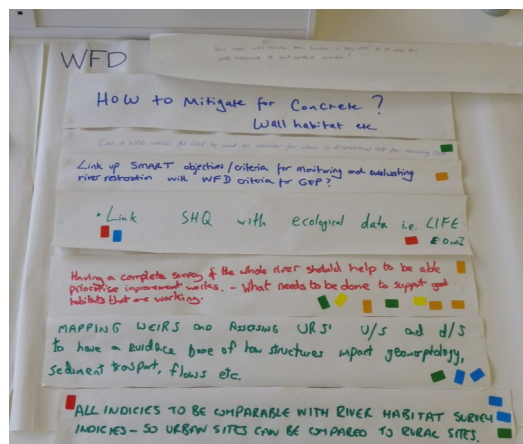 WFD
HOW to Mitigate for Concrete?
Wall habitat etc
Link up SMART objectives/criteria for monitoring and evaluating
river restoration with WFD criteria for GEP?
• Link SHQ with ecological data i.e. LIFE
Having a complete survey of the whole river should help to be able
prioritise improvement works. - What needs to be done to support good
habitats that are working.
MAPPING WEIRS and Assessing URS' U/S and d/s
to have a evidence base of how structures impact geomorphology,
sediment trasport, flows etc.
ALL INDICIES TO BE COMPARABLE WITH RIVER HABITAT SURVEY
INDICIES - SO URBAN SITES CAN BE COMPARED TO RURAL SITES.